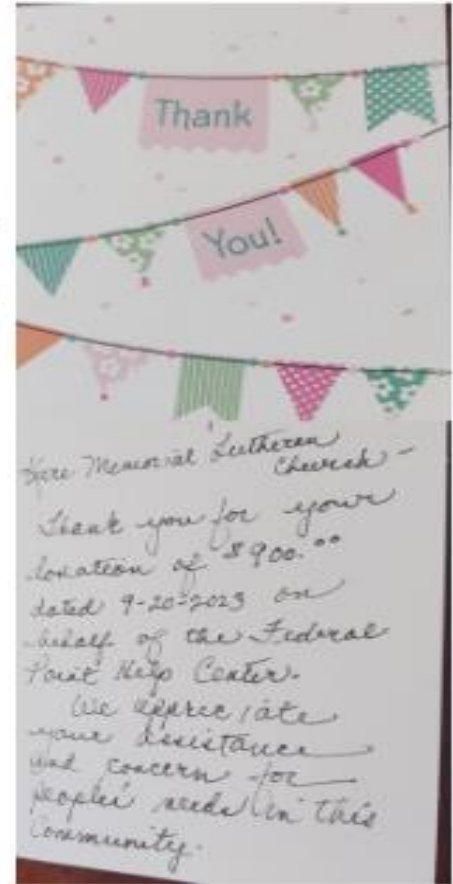 Thank
You!
Memorial Lutheran
Church -
Thank you for your
donation of $900.00
dated 9-20-2023 on
behalf of the Federal
Point Help Center.
We appreciate
your assistance
and concern for
peoples' needs in this
Community.